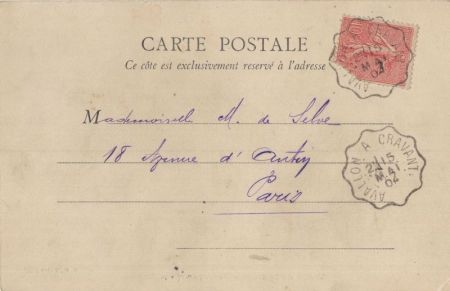 CARTE POSTALE
Ce côté est exclusivement reservé à l'adresse
Mademoisel M. de Selve
18 Avenue d'Antin
Paris
AVALLON A CRAVANT
15
MAI
02
AVAL
MAI
02